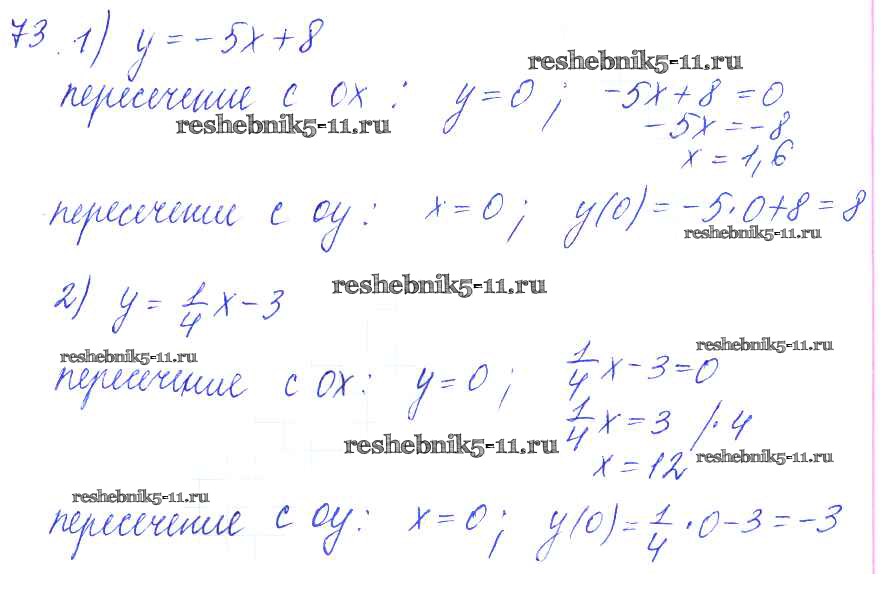 73. 1) y = -5x + 8
reshebnik5-11.ru
пересечение с ох: y = 0; -5x + 8 = 0
reshebnik5-11.ru
-5x = -8
x = 1,6
пересечение с оу: x = 0; y(0) = -5·0+8 = 8
reshebnik5-11.ru
2) y = 1/4 x - 3
reshebnik5-11.ru
reshebnik5-11.ru
reshebnik5-11.ru
пересечение с ох: y = 0; 1/4 x - 3 = 0
1/4 x = 3 /·4
reshebnik5-11.ru
x = 12
reshebnik5-11.ru
reshebnik5-11.ru
пересечение с оу: x = 0; y(0) = 1/4 · 0 - 3 = -3